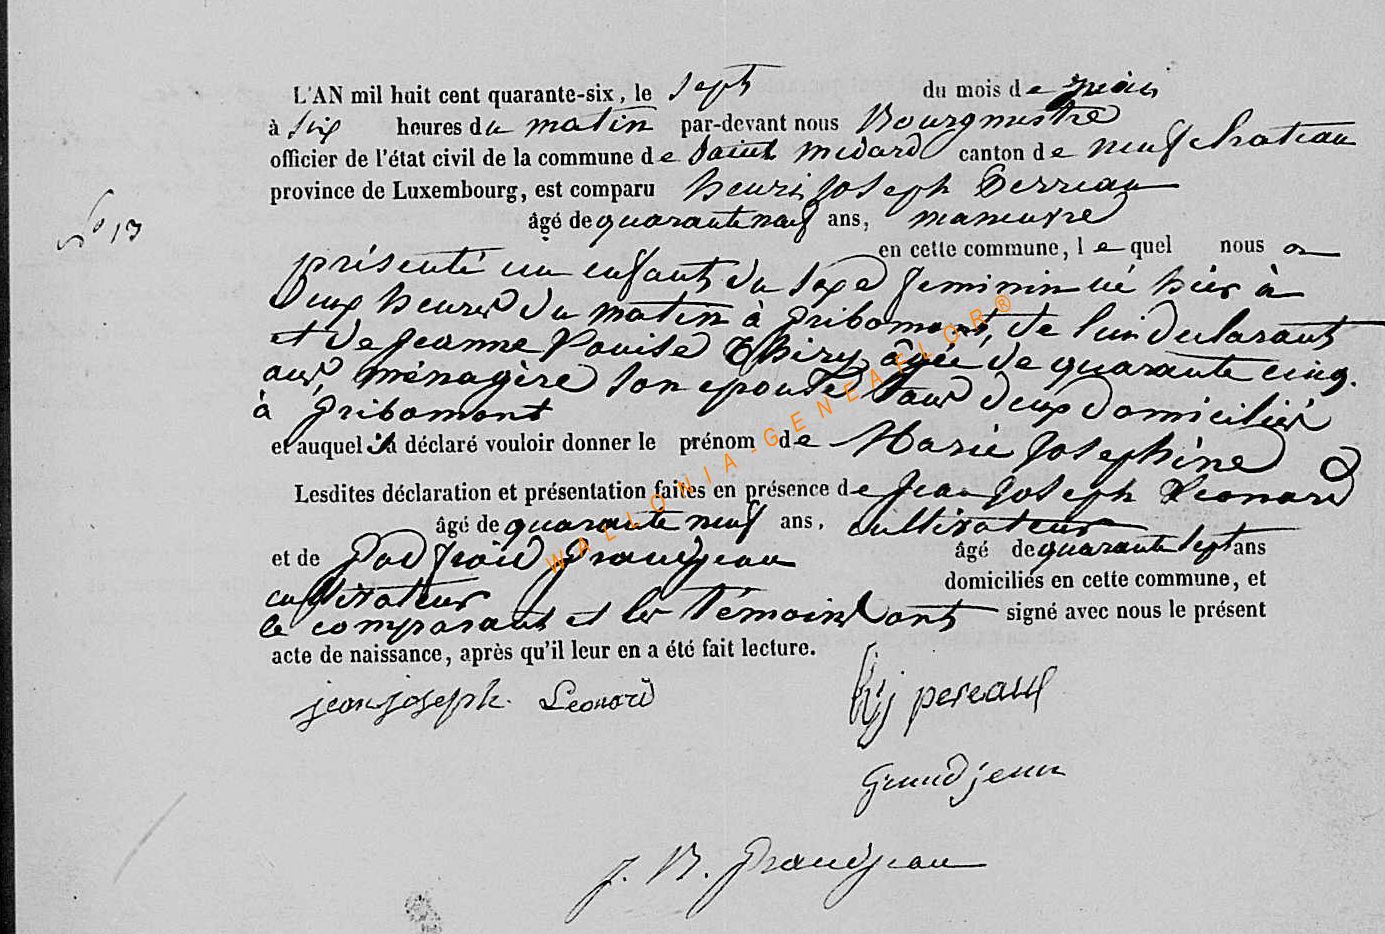 L'AN mil huit cent quarante-six, le sept du mois de
à six heures du matin par-devant nous Bourgmestre
officier de l'état civil de la commune de Saint Medard canton de neufchateau
province de Luxembourg, est comparu henri joseph Perreau
N° 13
âgé de quarante neuf ans, maneuvre
en cette commune, lequel nous a
présenté un enfant du sexe feminin né hier à
deux heures du matin à gribomont, de lui declarant
et de jeanne Louise Thiry âgée de quarante cinq
ans, ménagère son epouse tous deux domiciliés
à gribomont
et auquel il a déclaré vouloir donner le prénom de Marie Josephine
Lesdites déclaration et présentation faites en présence de jean joseph Leonard
âgé de quarante neuf ans, cultivateur
et de godfroid grandjean âgé de quarante sept ans
cultivateur domiciliés en cette commune, et
le comparant et les témoins ont signé avec nous le présent
acte de naissance, après qu'il leur en a été fait lecture.
jean joseph Leonard
hj pereaux
grandjean
j. B. grandjean
WALLONIA-GENEAFLOR®